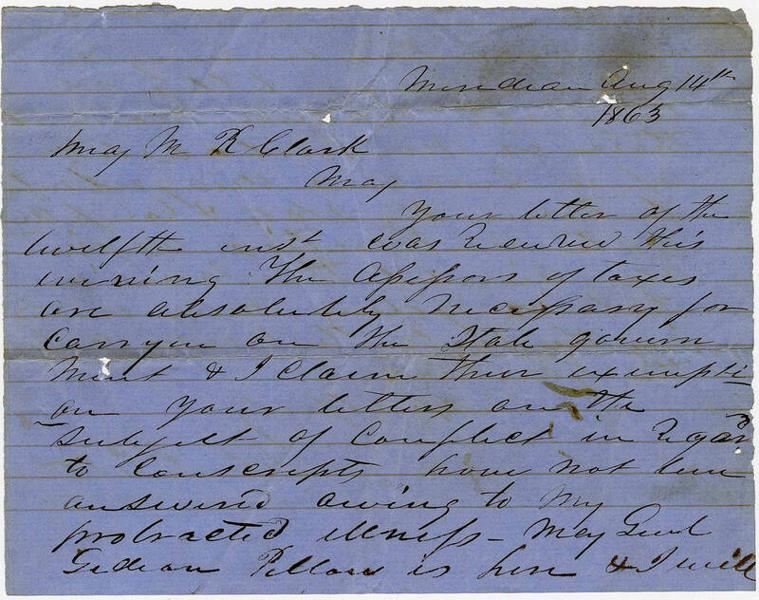 Meridian Aug 14th
1863
Maj M R Clark
Maj
Your letter of the
twelfth inst was received this
evening The Assessors of taxes
are absolutely necessary for
carrying on the State govern
ment & I claim their exempti-
on Your letters on the
subject of Conflict in regard
to Conscripts have not been
answered owing to my
protracted illness - May Genl
Gideon Pillow is here & I will